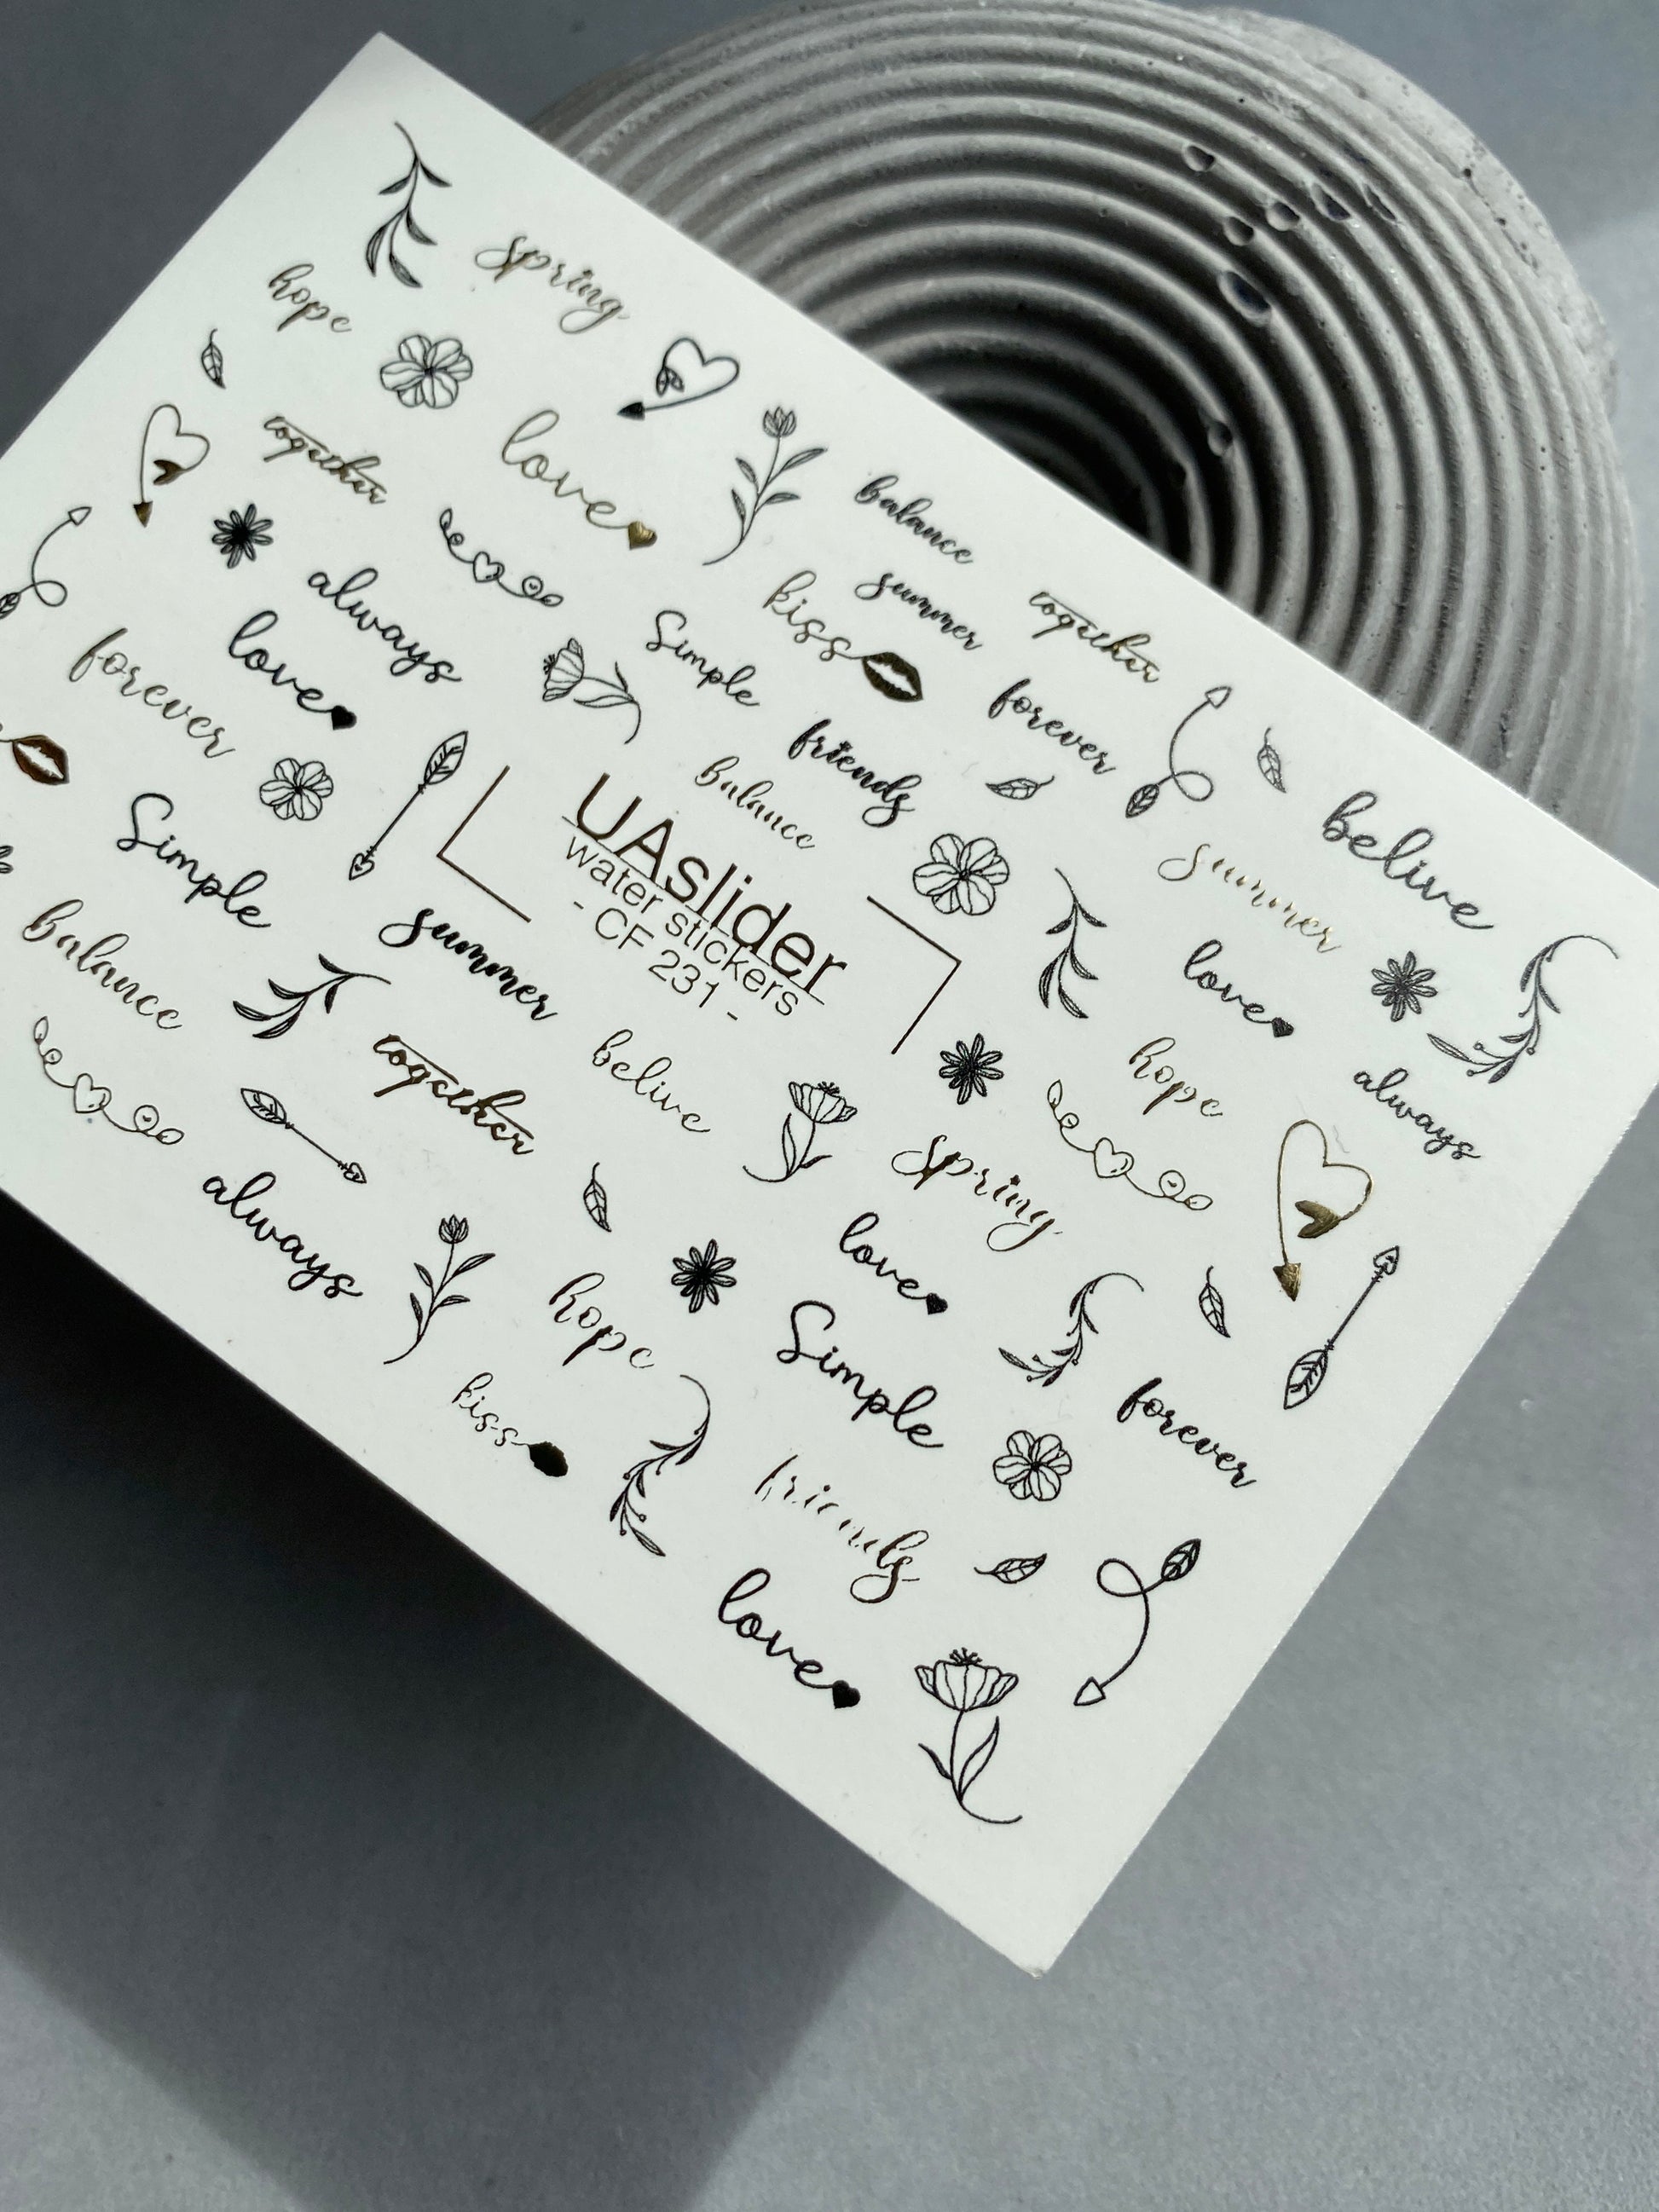 spring
hope
love
together
balance
kiss
summer
together
always
Simple
forever
love
friends
belive
forever
balance
summer
UAslider
water stickers
- CF 231 -
love
Simple
hope
always
summer
balance
belive
together
spring
always
love
hope
Simple
forever
kiss
friends
love